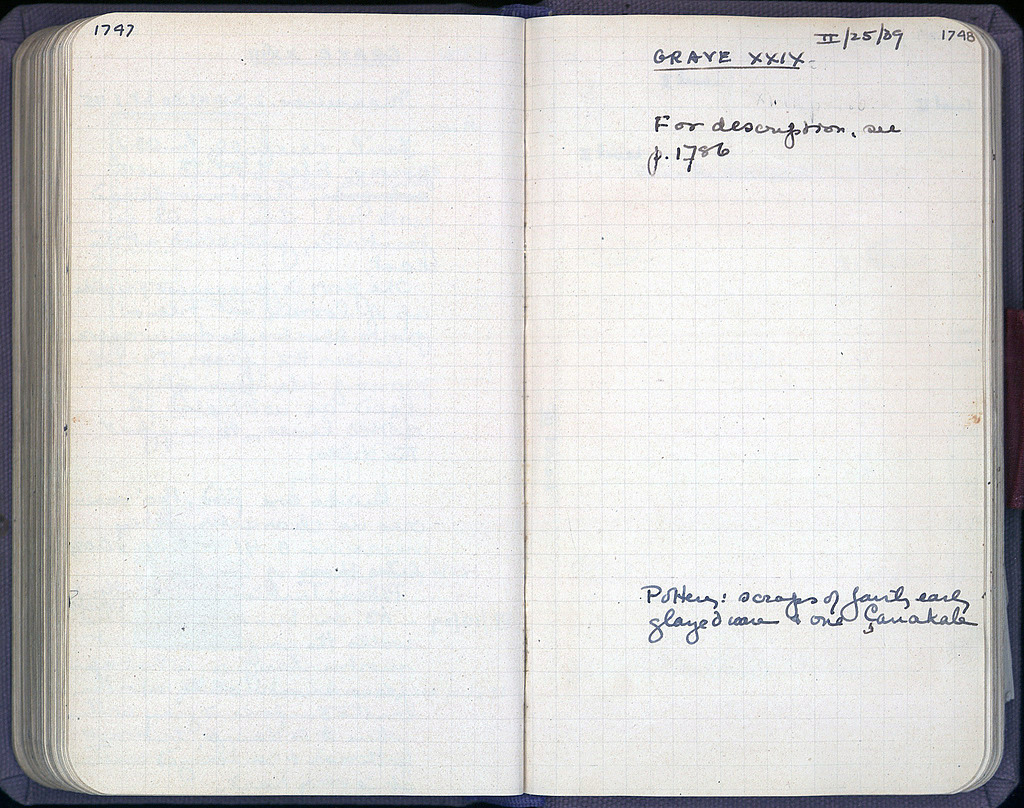 1747
II/25/39 1748
GRAVE XXIX.
For description, see
p. 1786
Pottery: scraps of fairly early
glazed ware + one Çanakale